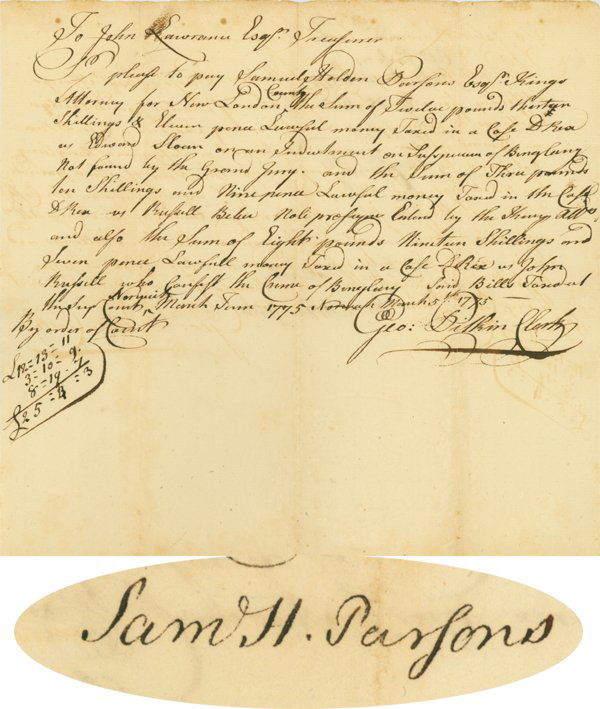 To John Lawrance Esqr. Treasurer
Sr please to pay Samuel Holden Parsons Esqr. Kings
Attorney for New London County the Sum of Twelve pounds thirteen
Shillings & Eleven pence Lawful money Taxed in a Case D Rex
vs Edward Sloan on an Indictment on Suspicion of Burglary
Not found by the Grand Jury. and the Sum of Three pounds
ten Shillings and Nine pence Lawful money Taxed in the Case
D Rex vs Russell Nole prosequi by the
and also the Sum of Eight pounds Nineteen Shillings and
Seven pence Lawfull money Taxed in a Case D Rex vs John
Russell who Confest the Crime of Burglary Said Bills Taxed at
the Supr Court Norwich March Term 1775 Norwich March 5th 1775
By order of Court
Geo: Pitkin Clerk
£12=13=11
3=10=9
8=19=7
£25=4=3
Saml H. Parsons